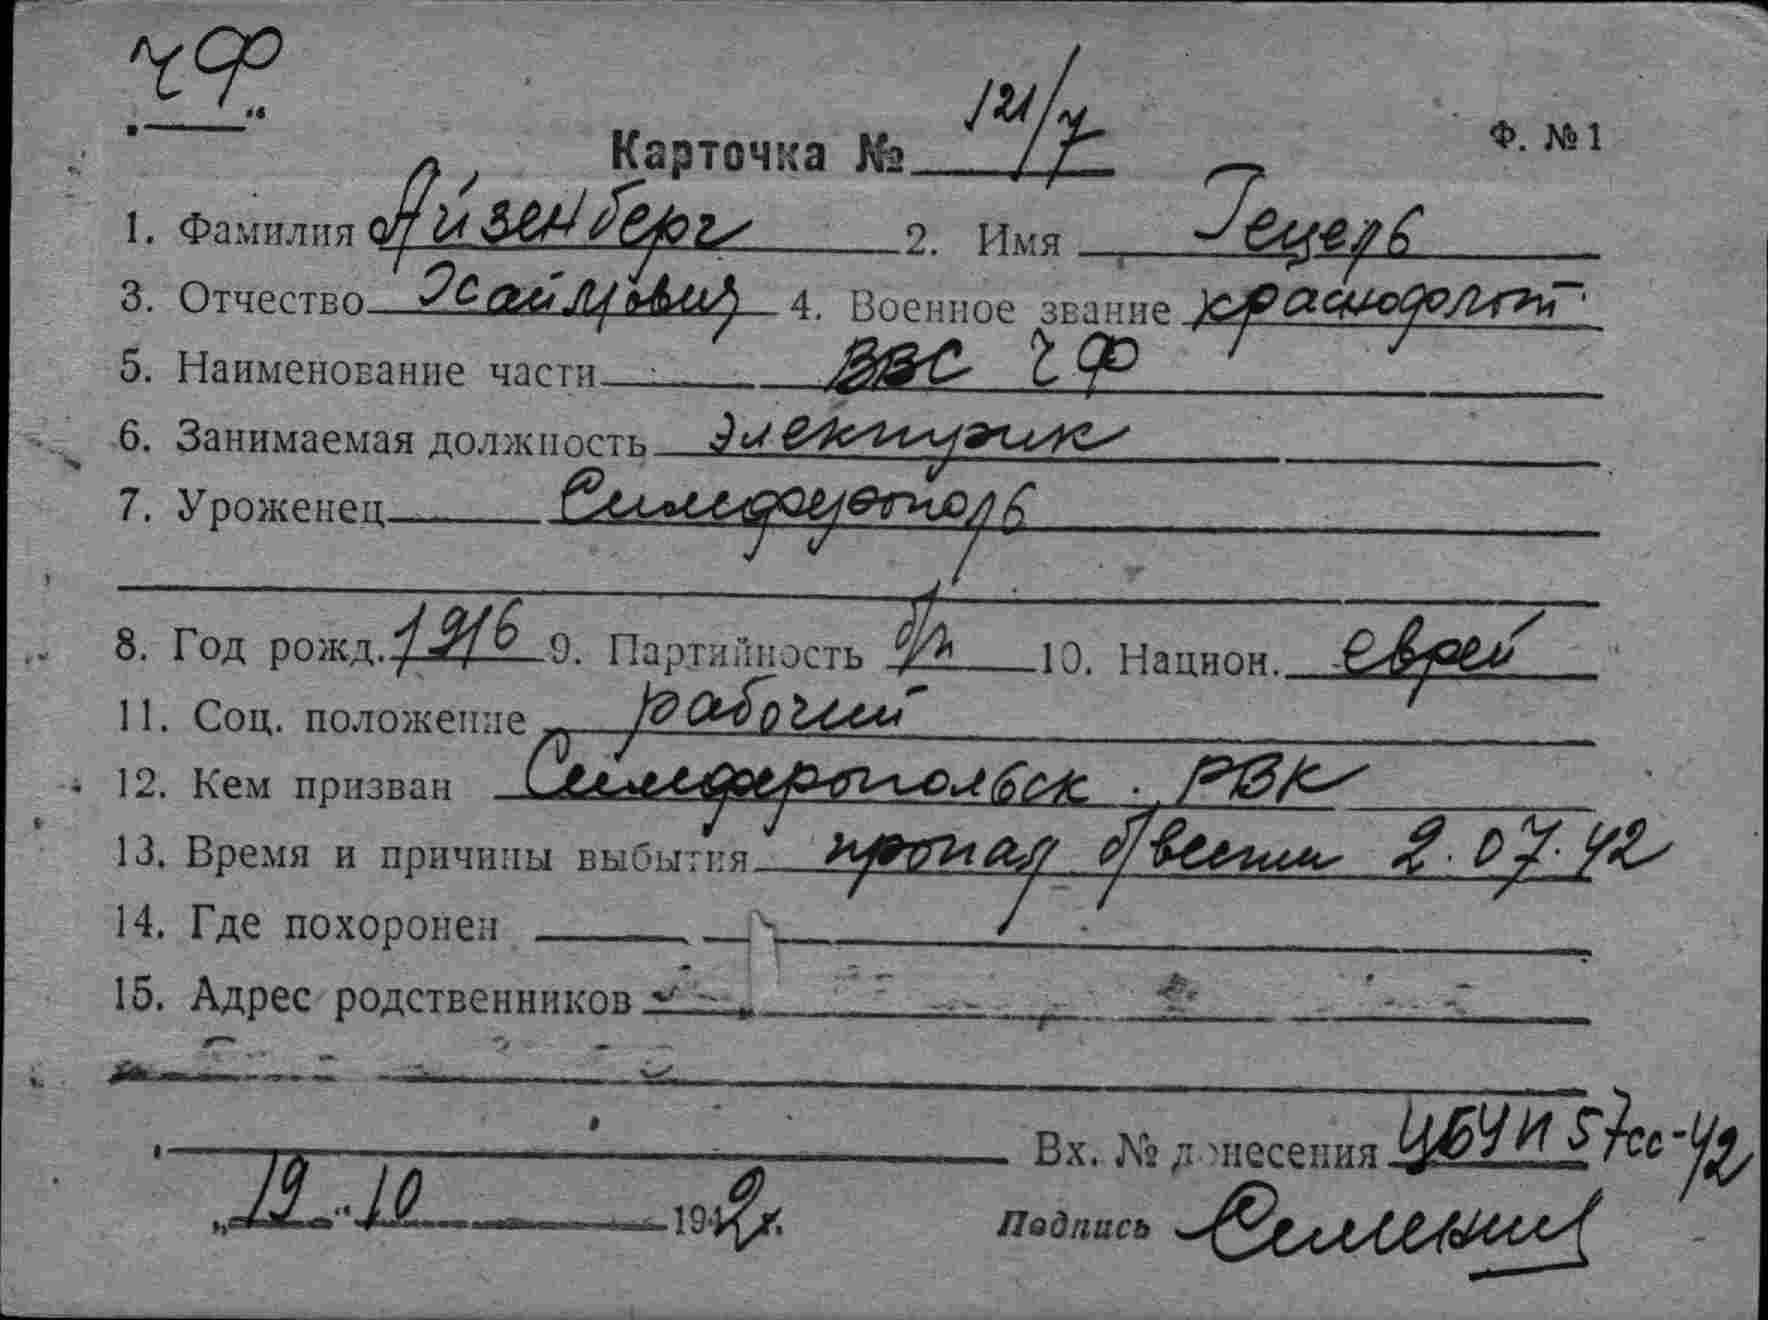 ЧФ
Карточка № 121/7 Ф. № 1
1. Фамилия Айзенберг 2. Имя Гецель
3. Отчество Хаймович 4. Военное звание краснофлот
5. Наименование части ВВС ЧФ
6. Занимаемая должность электрик
7. Уроженец Симферополь
8. Год рожд. 1916 9. Партийность б/п 10. Национ. еврей
11. Соц. положение рабочий
12. Кем призван Симферопольск. РВК
13. Время и причины выбытия пропал б/вести 2.07.42
14. Где похоронен
15. Адрес родственников
Вх. № донесения ЦБУП 57сс-42
„19" 10 1942г. Подпись